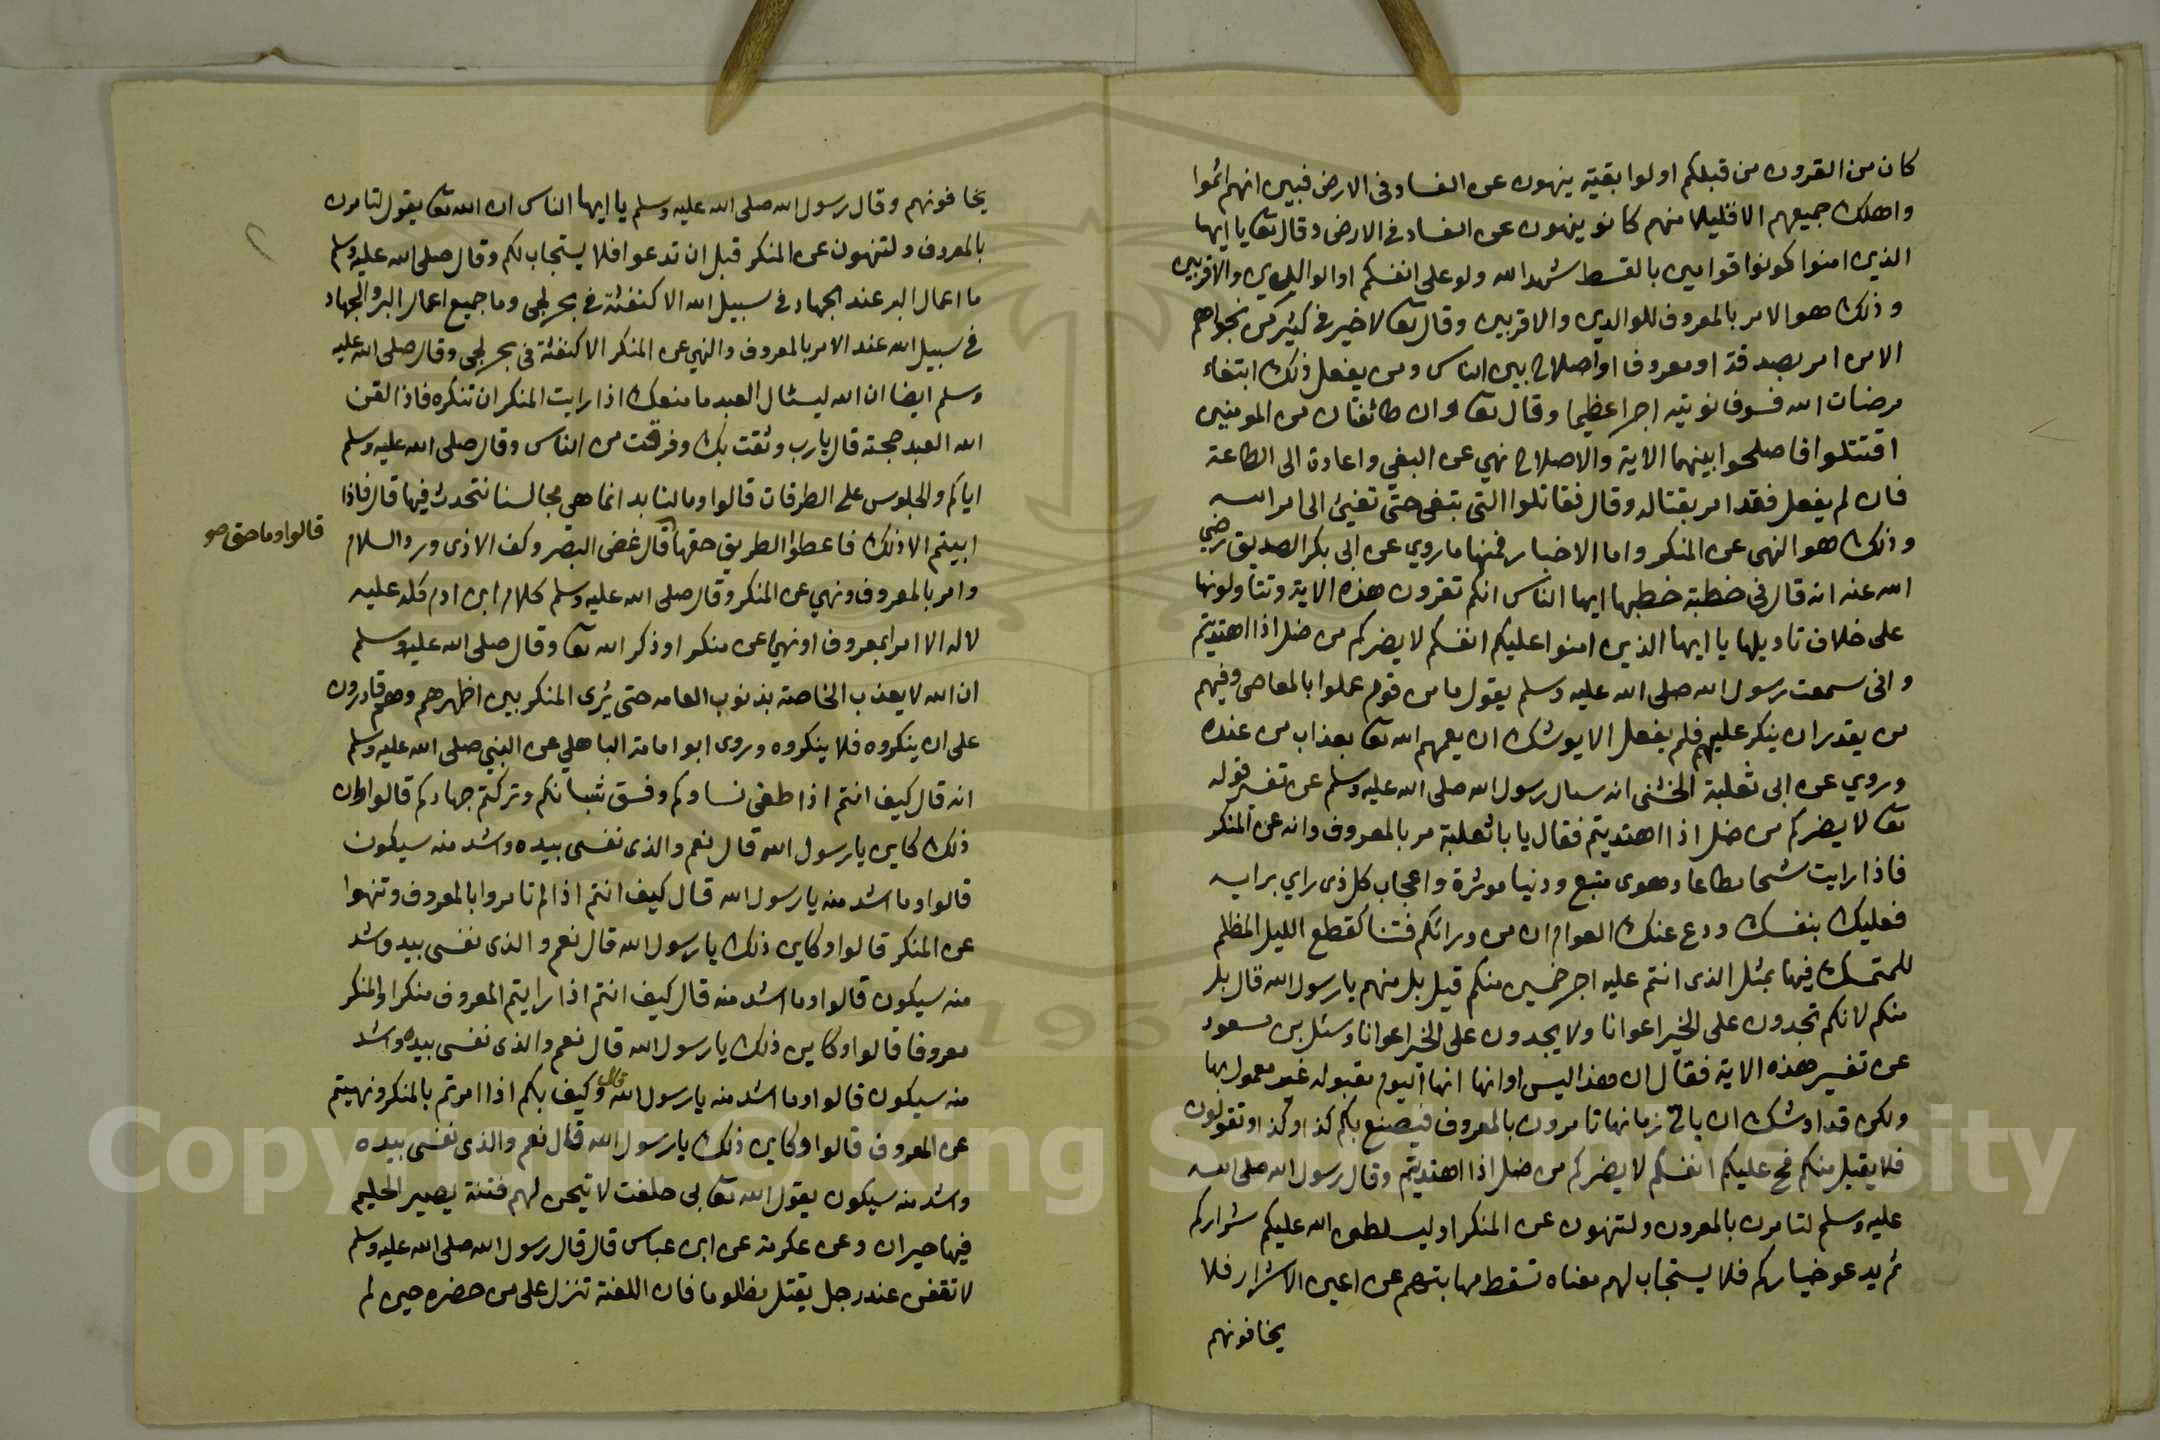 كان من القرون من قبلكم اولوا بقية ينهون عن الفساد في الارض فبين انهم اثموا
واهلك جميعهم الا قليلا منهم كانو ينهون عن الفساد في الارض وقال تعا يا ايها
الذين امنوا كونوا قوامين بالقسط شهدالله ولو على انفسكم او الوالدين والاقربين
وذلك هو الامر بالمعروف للوالدين والاقربين وقال تعا لا خير في كثير من نجواهم
الا من امر بصدقة او معروف او اصلاح بين الناس ومن يفعل ذلك ابتغاء
مرضات الله فسوف نوتيه اجرا عظيما وقال تعا وان طائفتان من المومنين
اقتتلوا فاصلحوا بينهما الاية والاصلاح نهي عن البغي واعادة الى الطاعة
فان لم يفعل فقد امر بقتاله وقال فقاتلوا التي بتغى حتى تفيئ الى امر الله
وذلك هو النهى عن المنكر واما الاخبار فمنها ما روي عن ابى بكر الصديق رضي
الله عنه انه قال في خطبة خطبها ايها الناس انكم تقرون هذه الاية وتتاولونها
على خلاف تاويلها يا ايها الذين امنوا عليكم انفسكم لا يضركم من ضل اذا اهتديتم
وانى سمعت رسول الله صلى الله عليه وسلم يقول ما من قوم عملوا بالمعاصى وفيهم
من يقدر ان ينكر عليهم فلم يفعل الا يوشك ان يعمهم الله تعا بعذاب من عنده
وروي عن ابى ثعلبة الخشنى انه سال رسول الله صلى الله عليه وسلم عن تفسير قوله
تعا لا يضركم من ضل اذا اهتديتم فقال يا با ثعلبة مر بالمعروف وانه عن المنكر
فاذا رايت شحا مطاعا وهوى متبع ودنيا موثرة واعجاب كل ذى راي برايه
فعليك بنفسك ودع عنك العوام ان من ورائكم فتنا كقطع الليل المظلم
للمتمسك فيها بمثل الذى انتم عليه اجر خمسين منكم قيل بل منهم يا رسول الله قال بل
منكم لانكم تجدون على الخير اعوانا ولا يجدون على الخير اعوانا وسئل بن مسعود
عن تفسير هذه الاية فقال ان هذا ليس اوانها انها اليوم مقبوله غير معمول بها
ولكن قد اوشك ان ياتي زمانها تامرون بالمعروف فيصنع بكم كذا وكذا وتقولون
فلا يقبل منكم فح عليكم انفسكم لا يضركم من ضل اذا اهتديتم وقال رسول الله صلى الله
عليه وسلم لتامرن بالمعرون ولتنهون عن المنكر او ليسلطن الله عليكم شراركم
ثم يدعو خياركم فلا يستجاب لهم معناه تسقط مهابتهم عن اعين الاشرار فلا
يخافونهم
يخافونهم وقال رسول الله صلى الله عليه وسلم يا ايها الناس ان الله تعا يقول لتامرن
بالمعروف ولتنهون عن المنكر قبل ان تدعوا فلا يستجاب لكم وقال صلى الله عليه وسلم
ما اعمال البر عند الجهاد في سبيل الله الا كنفثة في بحر لجى وما جميع اعمال البر والجهاد
في سبيل الله عند الامر بالمعروف والنهي عن المنكر الا كنفثة في بحر لجى وقال صلى الله عليه
وسلم ايضا ان الله ليسئال العبد ما منعك اذا رايت المنكر ان تنكره فاذا لقن
الله العبد حجته قال يا رب وثقت بك وفرقت من الناس وقال صلى الله عليه وسلم
اياكم والجلوس على الطرقات قالوا ومالنا بد انما هى مجالسنا نتحدث فيها قال فاذا
ابيتم الا ذلك فاعطوا الطريق حقها قال غض البصر وكف الاذى ورد السلام
قالوا وما حق هو
وامر بالمعروف ونهي عن المنكر وقال صلى الله عليه وسلم كلام ابن ادم كله عليه
لا له الا امرا بمعروف او نهيا عن منكر او ذكر الله تعا وقال صلى الله عليه وسلم
ان الله لا يعذب الخاصة بذنوب العامه حتى يُرى المنكر بين اظهرهم وهم قادرون
على ان ينكروه فلا ينكروه وروى ابو امامة الباهلي عن النبي صلى الله عليه وسلم
انه قال كيف انتم اذا طغى نساوكم وفسق شبانكم وتركتم جهادكم قالوا وان
ذلك كاين يا رسول الله قال نعم والذى نفسى بيده واشد منه سيكون
قالوا وما اشد منه يا رسول الله قال كيف انتم اذا لم تامروا بالمعروف وتنهوا
عن المنكر قالوا وكاين ذلك يا رسول الله قال نعم والذى نفسى بيده واشد
منه سيكون قالوا وما اشد منه قال كيف انتم اذا رايتم المعروف منكرا والمنكر
معروفا قالوا وكاين ذلك يا رسول الله قال نعم والذى نفسى بيده واشد
منه سيكون قالوا وما اشد منه يا رسول الله قال وكيف بكم اذا امرتم بالمنكر ونهيتم
عن المعروف قالوا وكاين ذلك يا رسول الله قال نعم والذى نفسى بيده
واشد منه سيكون يقول الله تعا بى حلفت لاتيحن لهم فتنة يصير الحليم
فيها حيران وعن عكرمة عن ابن عباس قال قال رسول الله صلى الله عليه وسلم
لا تقفن عند رجل يقتل مظلوما فان اللعنة تنزل على من حضره حين لم
1957
Copyright © King Saud University